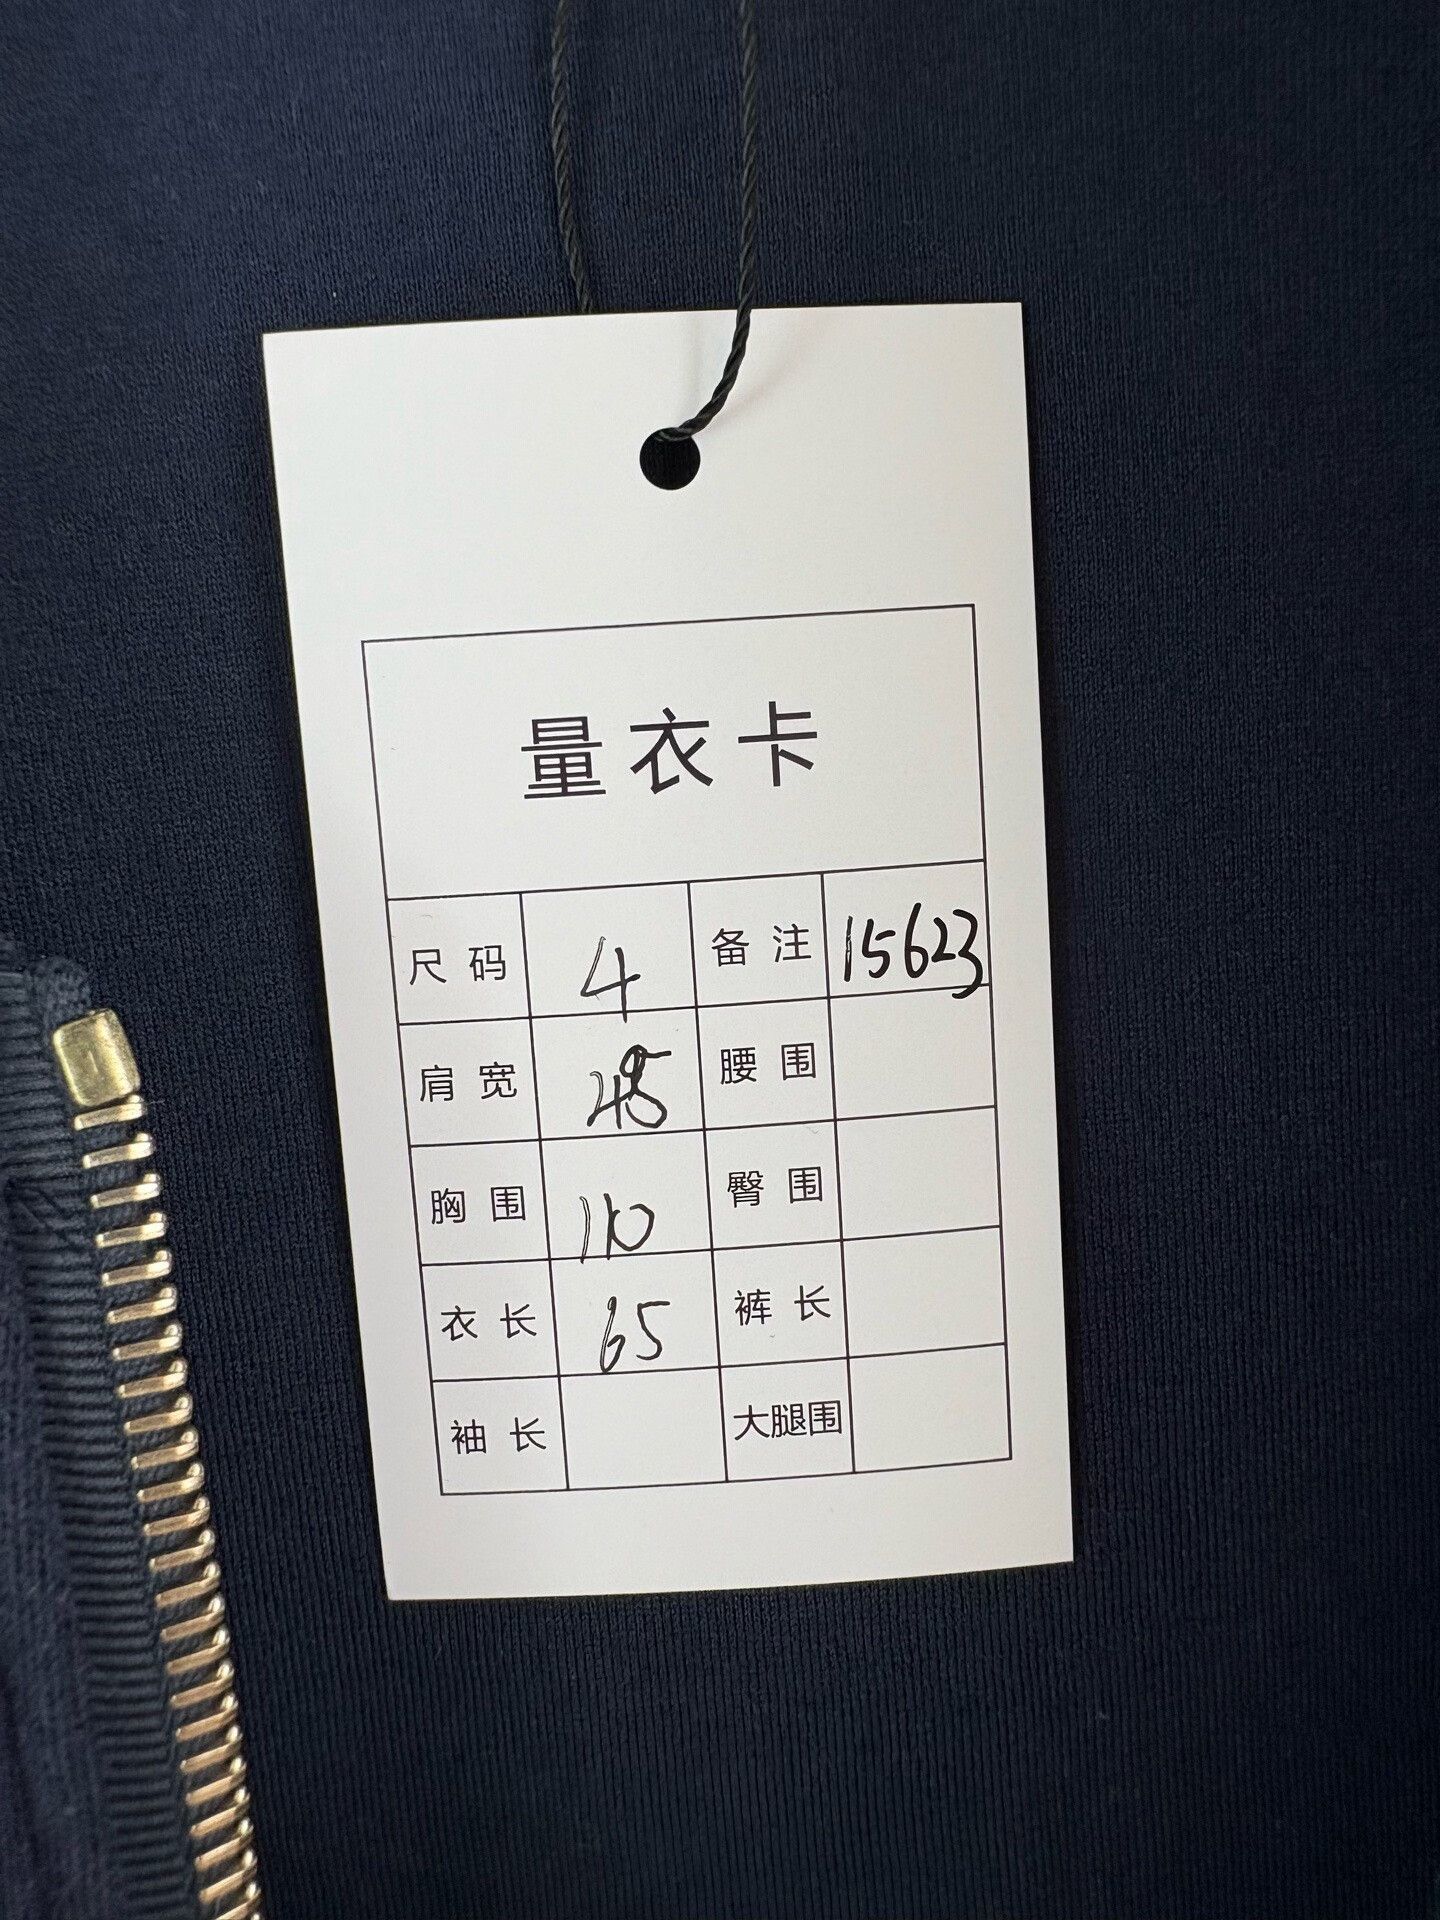 量衣卡
尺码 4 备注 15623
肩宽 腰围
胸围 110 臀围
衣长 65 裤长
袖长 大腿围